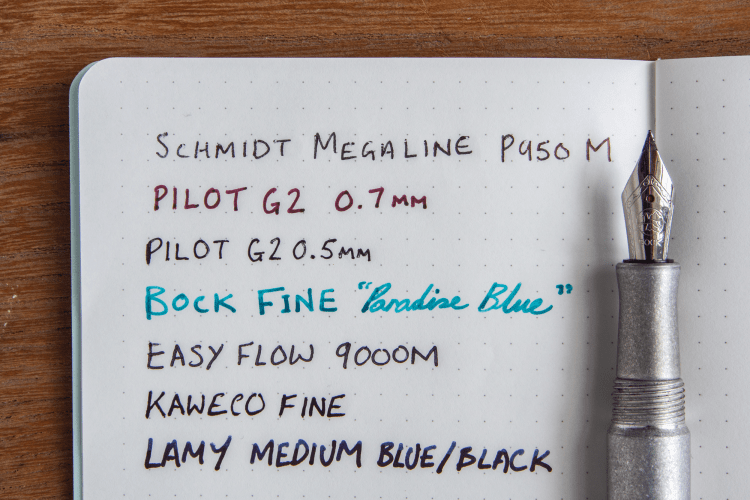 SCHMIDT MEGALINE P950 M
PILOT G2 0.7MM
PILOT G2 0.5MM
BOCK FINE "Paradise Blue"
EASY FLOW 9000M
KAWECO FINE
LAMY MEDIUM BLUE/BLACK